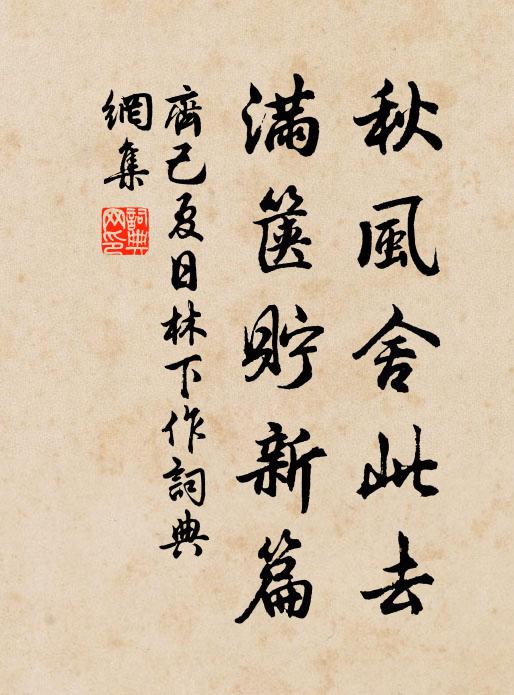 秋風舍此去
滿篋貯新篇
齊己夏日林下作詞典
網集
詞典網印